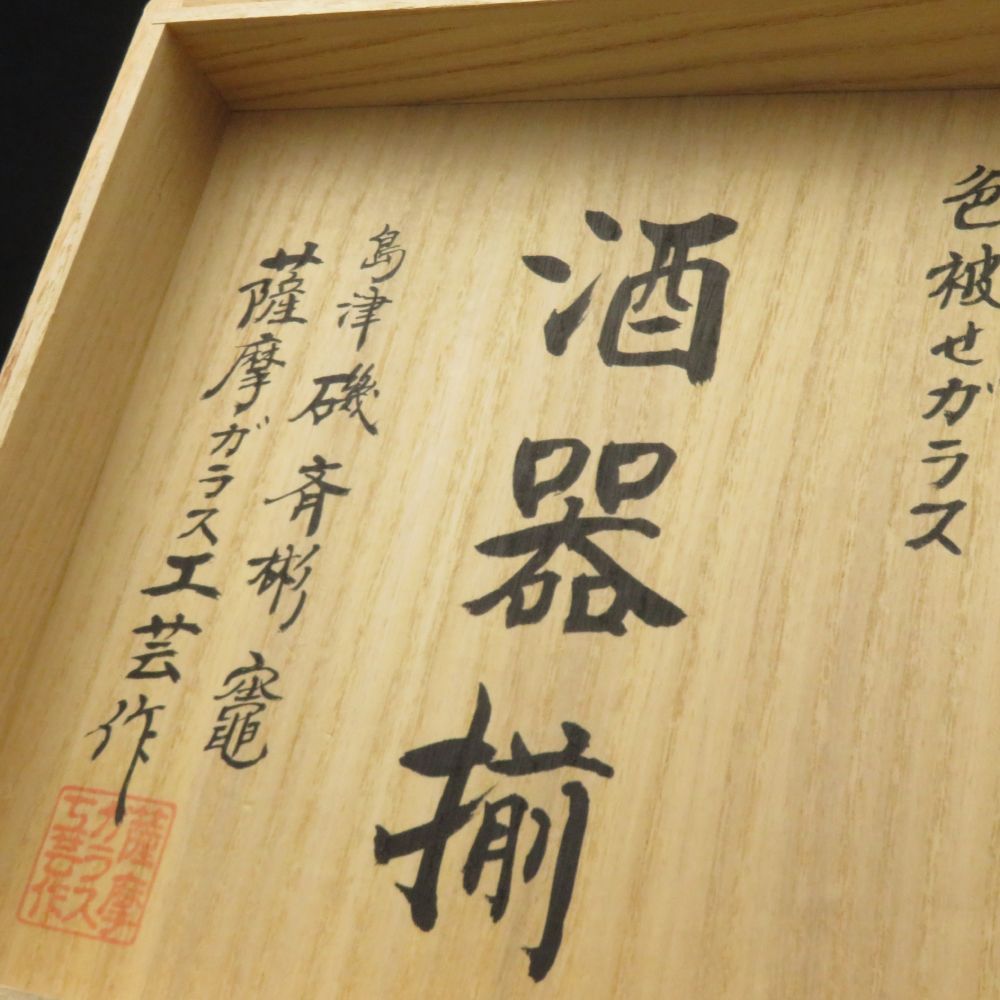 色被せガラス
酒器揃
島津磯斉彬竈
薩摩ガラス工芸作
薩摩
ガラス
工芸作